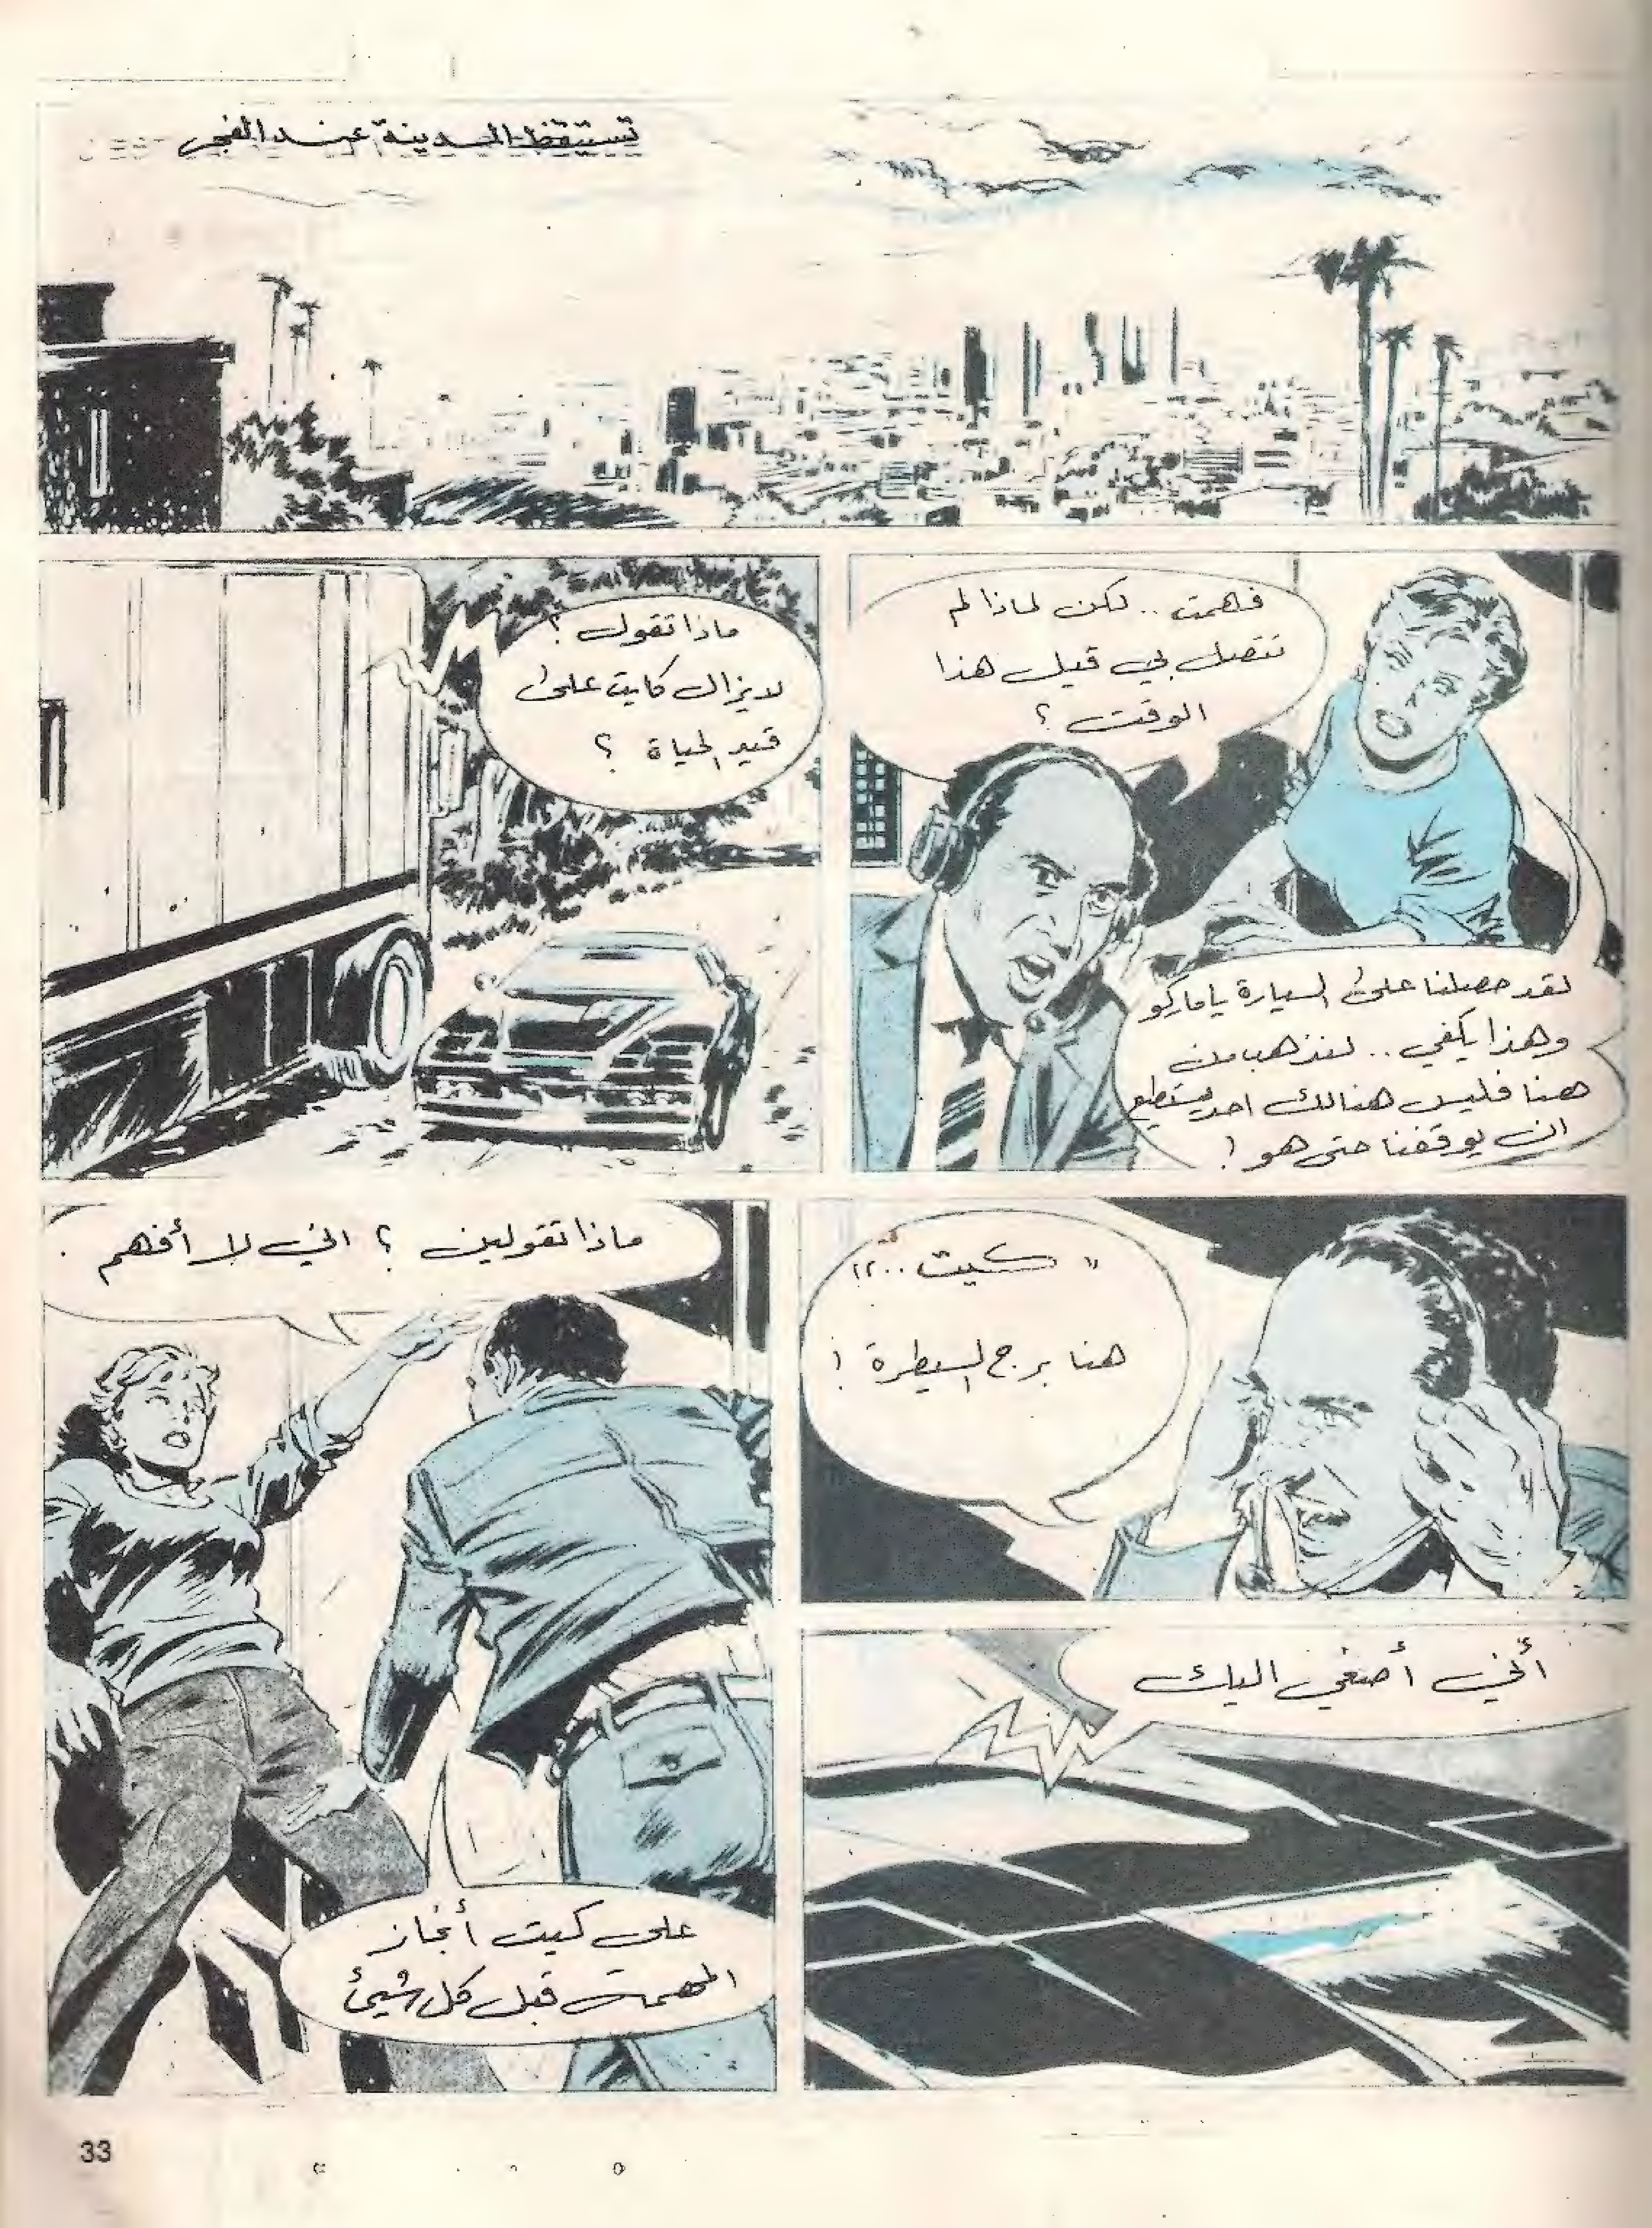 تستيقظ المدينة عند الفجر
فهمت .. لكن لماذا لم
تتصل بي قبل هذا
الوقت ؟
لقد حصلنا على السيارة ياماركو
وهذا يكفي .. لنذهب من
هنا فليس هنالك احد يستطيع
ان يوقفنا حتى هو !
ماذا تقول ؟
لا يزال كايت على
قيد الحياة ؟
" كيت ..؟!
هنا برج السيطرة !
أني أصغي اليك
ماذا تقولين ؟ اني لا أفهم .
على كيت أنجاز
المهمة قبل كل شيئ
33